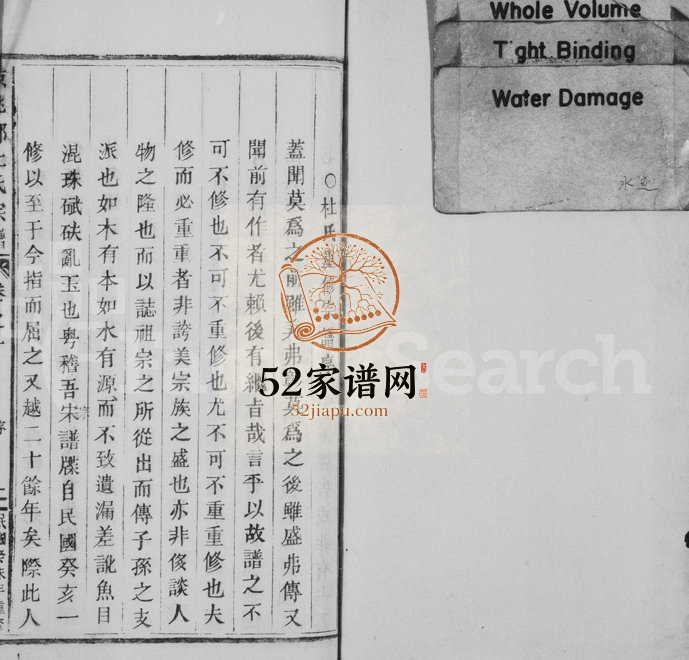 Whole Volume
Tight Binding
Water Damage
杜氏
蓋聞莫爲之前雖美弗爲之後雖盛弗傳又
聞前有作者尤賴後有繼旨哉言乎以故譜之不
可不修也不可不重修也尤不可不重重修也夫
修而必重重者非誇美宗族之盛也亦非侈談人
物之隆也而以誌祖宗之所從出而傳子孫之支
派也如木有本如水有源而不致遺漏差訛魚目
混珠碔砆亂玉也粵稽吾宋譜牒自民國癸亥一
修以至于今指而屈之又越二十餘年矣際此人
氏宗譜
序
52家谱网
52jiapu.com
Search